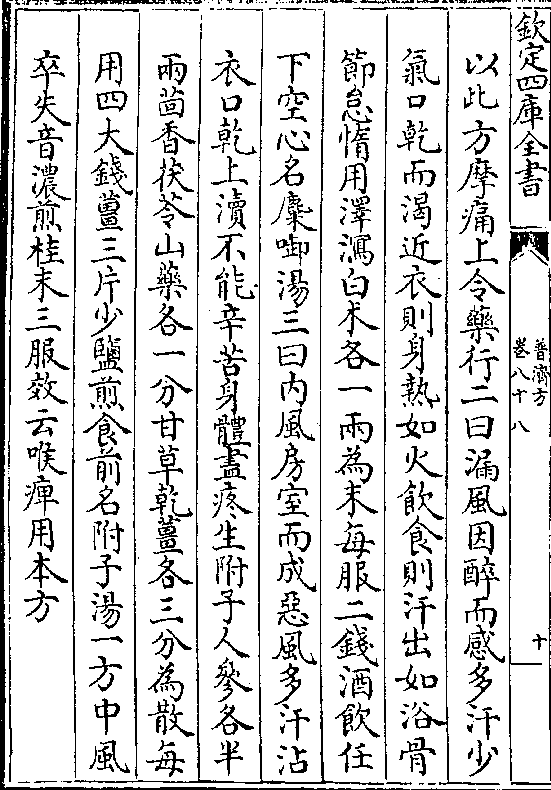 欽定四庫全書
普濟方
卷八十八
十
以此方摩痛上令藥行二曰漏風因醉而感多汗少
氣口乾而渴近衣則身熱如火飲食則汗出如浴骨
節怠惰用澤瀉白朮各一兩為末每服二錢酒飲任
下空心名麋啣湯三曰内風房室而成惡風多汗沾
衣口乾上瀆不能辛苦身體盡疼生附子人參各半
兩茴香茯苓山藥各一分甘草乾薑各三分為散每
用四大錢薑三片少鹽煎食前名附子湯一方中風
卒失音濃煎桂末三服效云喉痺用本方